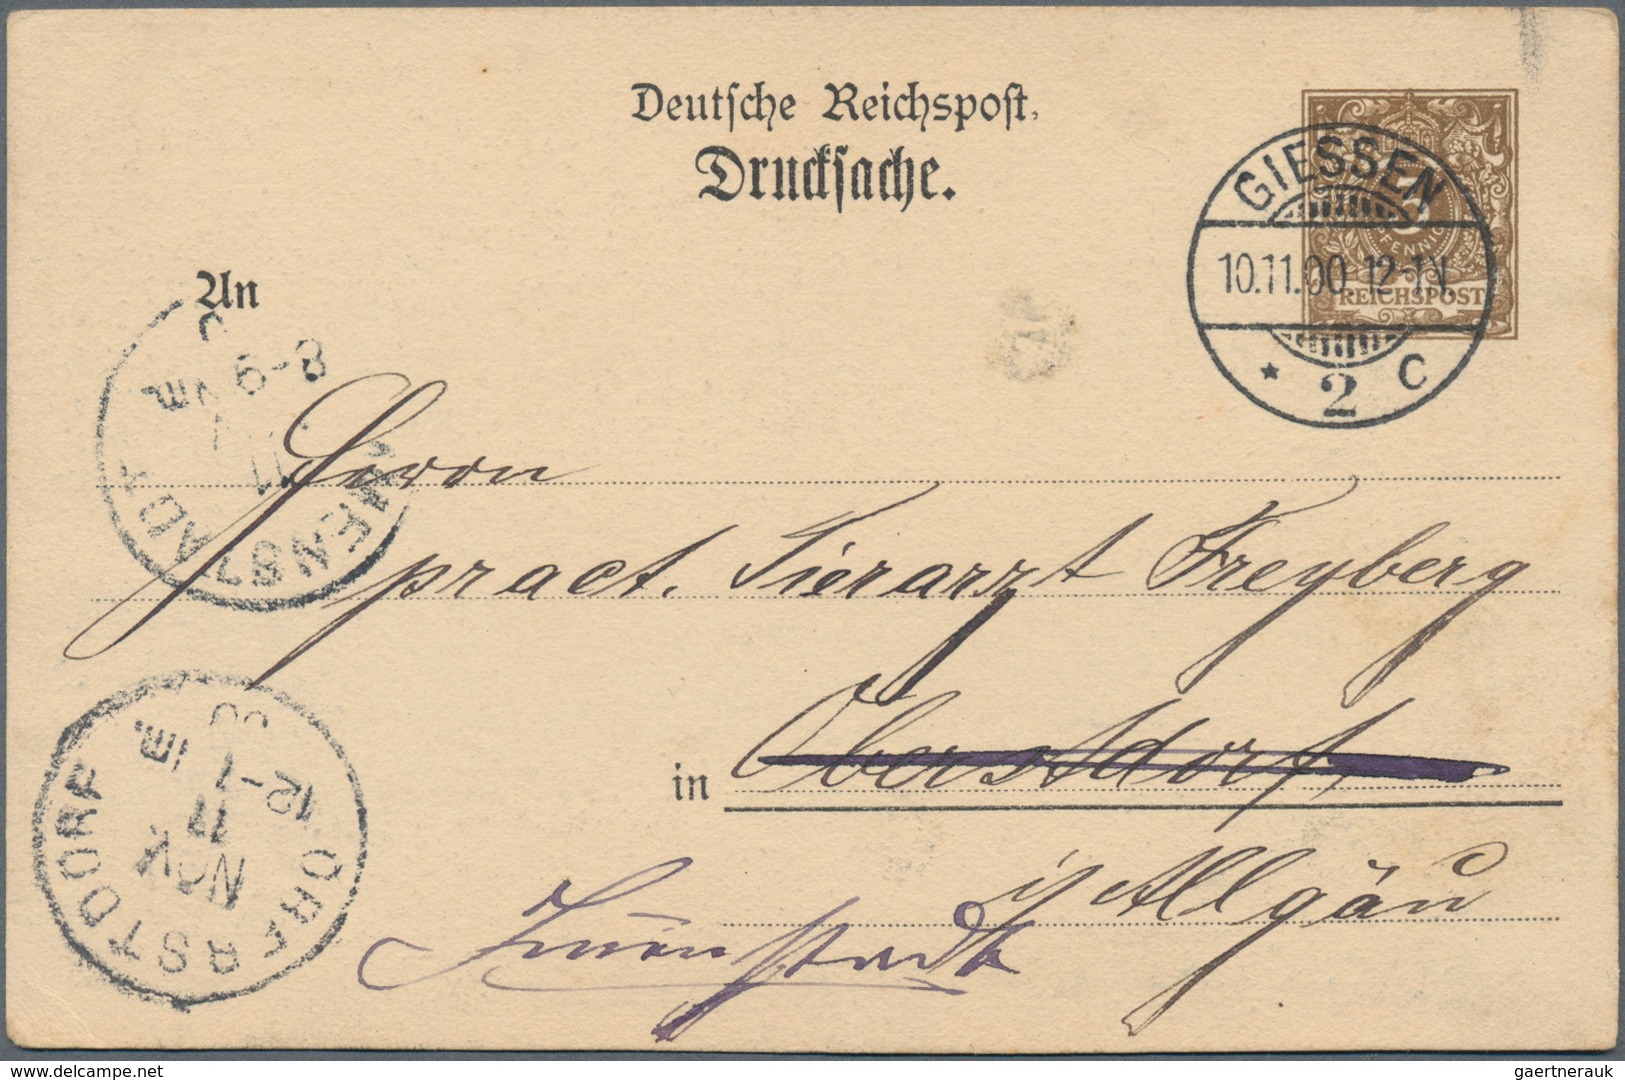 Deutsche Reichspost.
Drucksache.
GIESSEN
10.11.00 12-1N.
* 2 C
3
PFENNIG
REICHSPOST
An
8-9 Vm.
11
Herrn
pract. Tierarzt Freyberg
in Oberstdorf
i/ Allgäu
Immenstadt
OBERSTDORF
12-1
11
NOV
00
www.delcampe.net
gaertnerauk